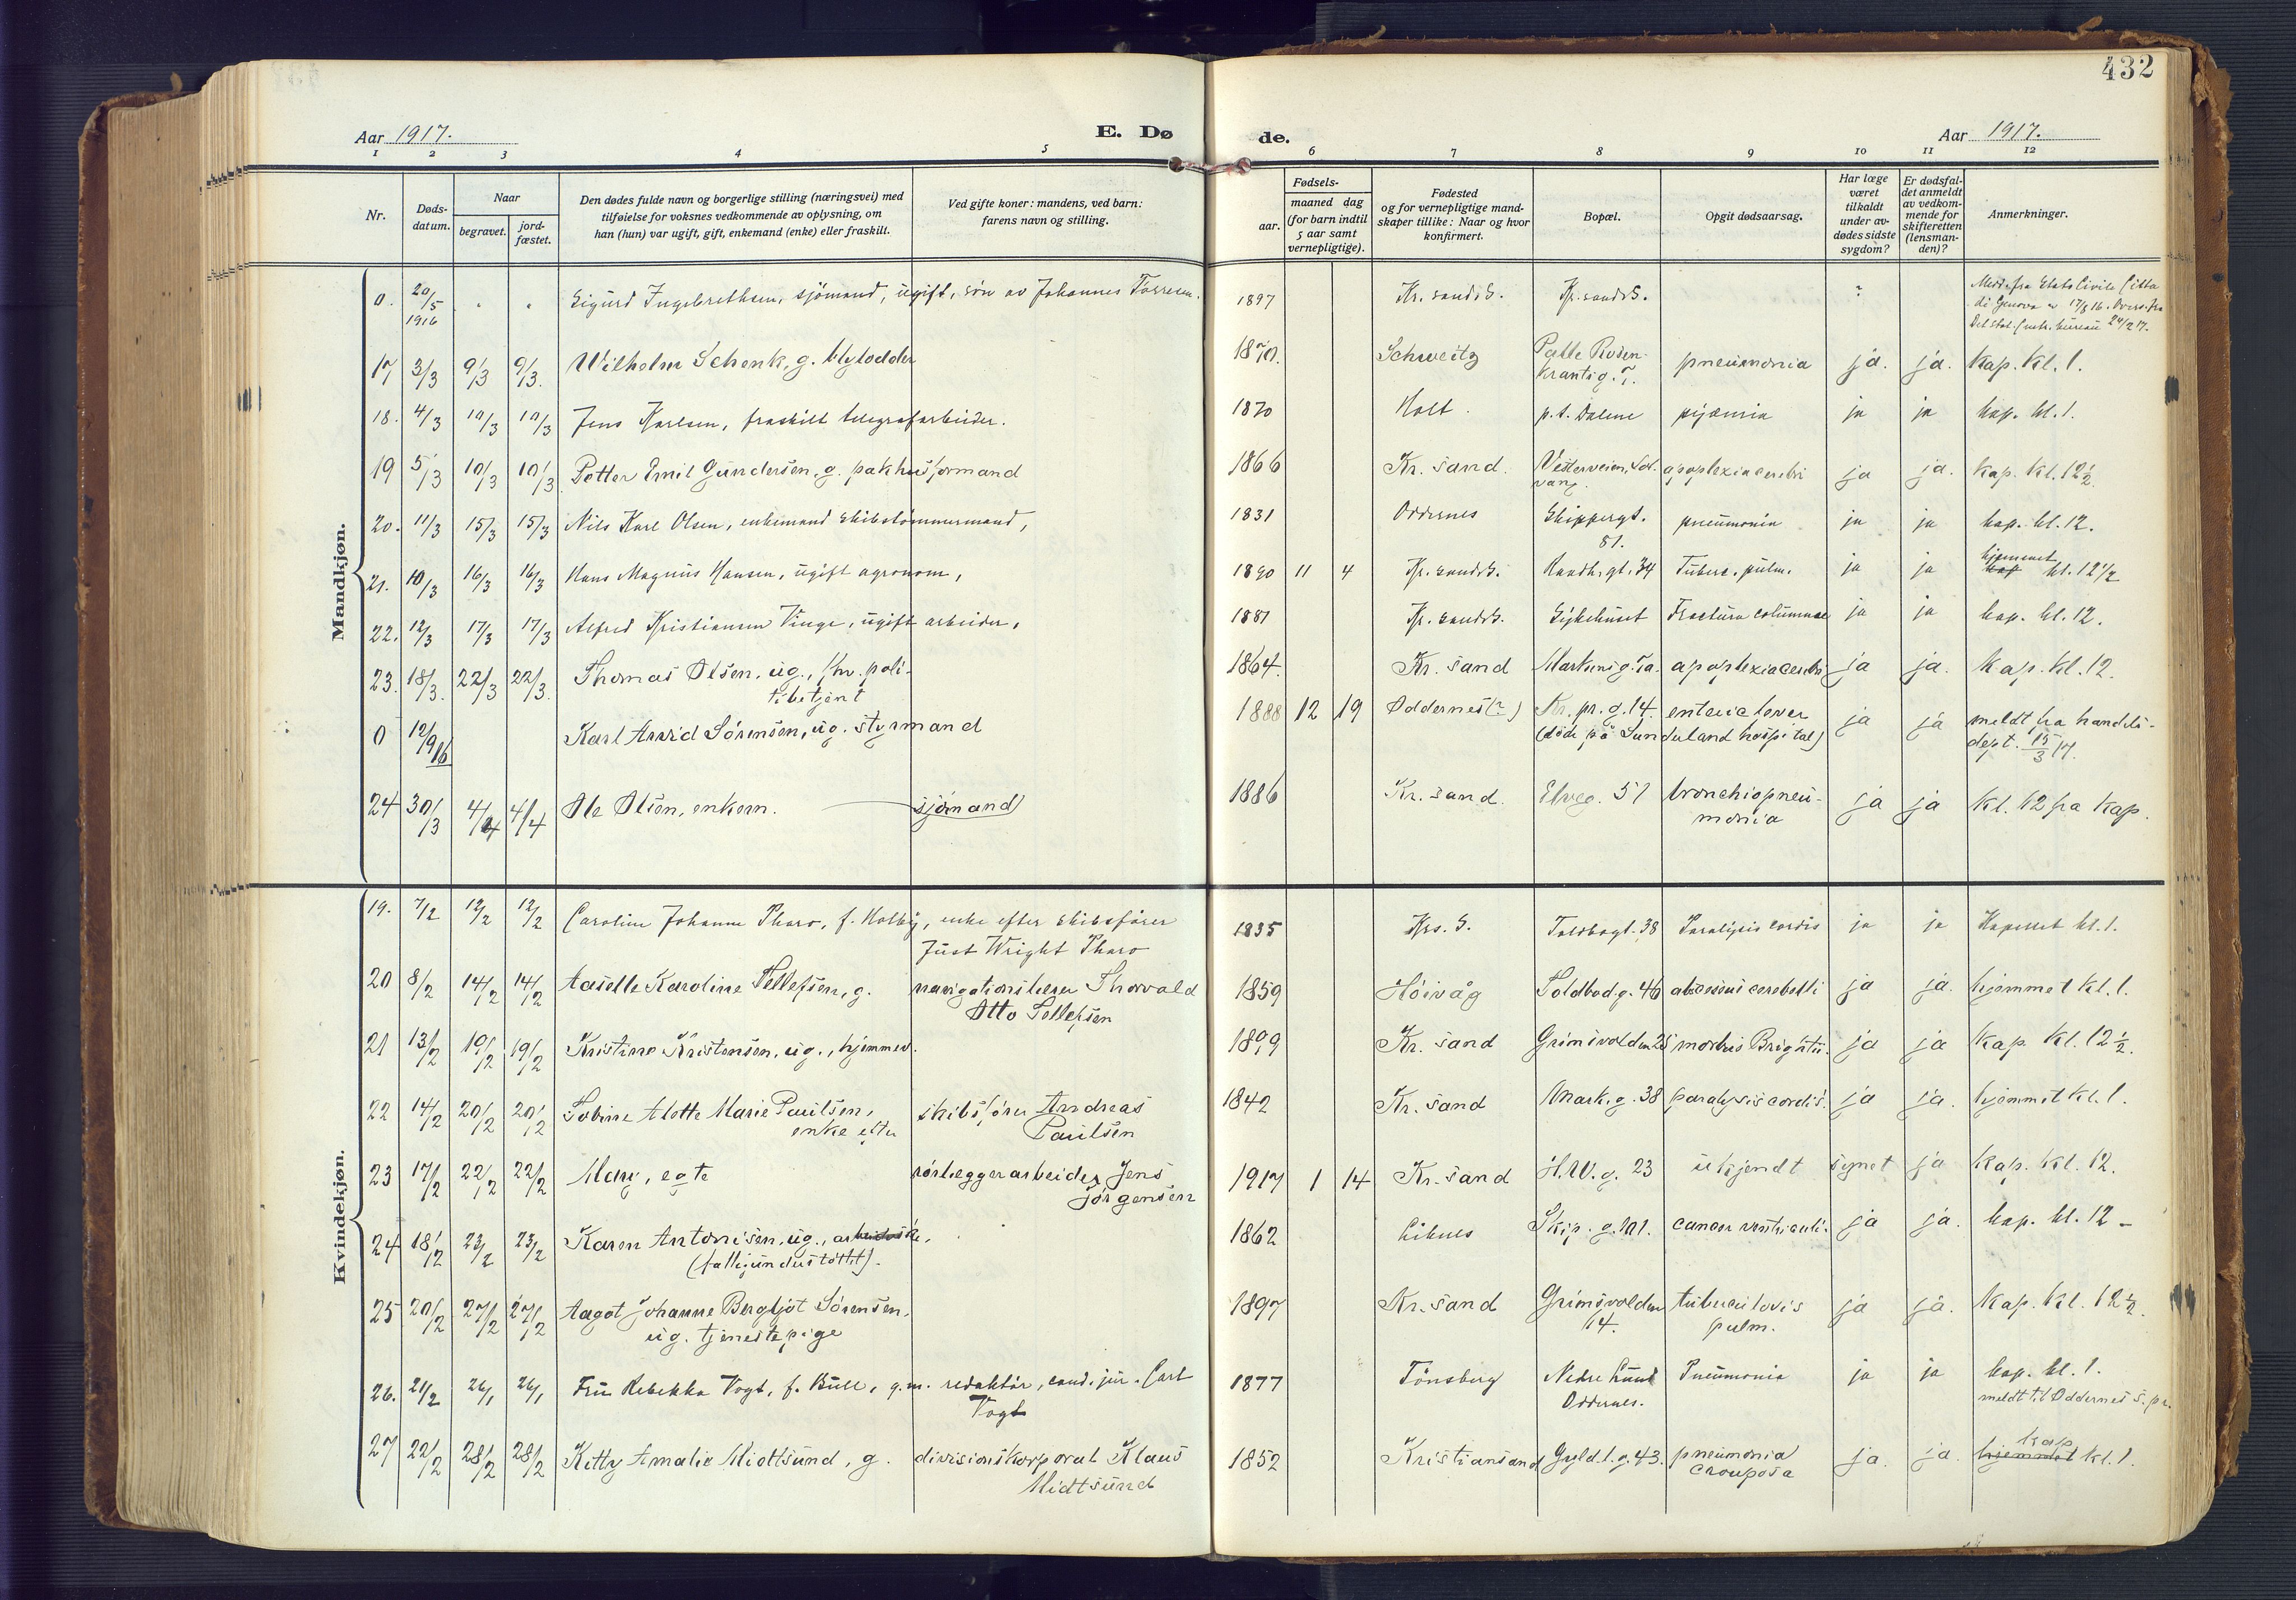 432
Aar 1917. E. Dø de. Aar 1917.
1 2 3 4 5 6 7 8 9 10 11 12
Nr.
Døds-
datum.
Naar
begravet.
jord-
fæstet.
Den dødes fulde navn og borgerlige stilling (næringsvei) med
tilføielse for voksnes vedkommende av oplysning, om
han (hun) var ugift, gift, enkemand (enke) eller fraskilt.
Ved gifte koner: mandens, ved barn:
farens navn og stilling.
Fødsels-
aar.
maaned dag
(for barn indtil
5 aar samt
vernepligtige).
Fødested
og for vernepligtige mand-
skaper tillike: Naar og hvor
konfirmert.
Bopæl.
Opgit dødsaarsag.
Har læge
været
tilkaldt
under av-
dødes sidste
sygdom?
Er dødsfal-
det anmeldt
av vedkom-
mende for
skifteretten
(lensman-
den)?
Anmerkninger.
Mandkjøn.
0. 20/5 1916 " " Sigurd Ingebrethsen, sjömand, ugift, sön av Johannes 1897 Kr.sandS. Kr.sandS. ?
Medd. fra Stato Civile Citta
di Genova
17 3/3 9/3 9/3. Wilhelm Schenk, g. 1870. Schweitz Palle Rosen-
krantsg. 7. pneumonia ja. ja. Kap. Kl. 1.
18. 4/3 10/3 10/3 Jens Karlsen, fraskilt telegrafarbeider. 1870 Holt. p.t. Dalene pijæmia ja ja kap. kl. 1.
19 5/3 10/3 10/3 Petter Emil Gundersen, g. pakhusformand 1866 Kr. sand. Vesterveien, Sol-
vang. apoplexia cerebri ja ja. Kap. Kl. 12½.
20. 11/3 15/3 15/3 Nils Karl Olsen, enkemand skibstömmermand, 1831 Oddernes Skippergt.
81. pneumonia ja ja kap. kl. 12.
21. 10/3 16/3 16/3 Hans Magnus Hansen, ugift agronom, 1890 11 4 Kr.sandS. Raadh.gt. 34 Tuberc. pulm. ja ja hjemmet
kap kl. 12½
22. 12/3 17/3 17/3 Alfred Kristiansen Vinge, ugift arbeider, 1881 Kr.sandS. Sykehuset Fractura columnae ja ja kap. kl. 12.
23. 18/3. 22/3 22/3. Thomas Olsen, ug., fhv. poli-
tibetjent 1864. Kr. sand Markensg. 7a. apoplexia cerebri ja ja. Kap. Kl. 12.
0 12/9 16 Karl Arvid Sörensen, ug. styrmand 1888 12 19 Oddernes(?) Kr. pr. g. 14. enteric fever ja ja meldt fra handels-
(död på Sunderland hospital) dept. 15/3 17.
24 30/3 4/4 4/4 Ole Olsen, enkem. sjömand 1886 Kr. sand. Elveg. 51 bronchiopneu-
monia ja ja Kl. 12 fra Kap.
Kvindekjøn.
19. 7/2 12/2 12/2 Caroline Johanne Pharo, f. Holby, enke efter skibsförer
Just Wright Pharo 1835 Krs. S. Toldbogt. 38 Paralysis cordis ja ja Kapellet kl. 1.
20 8/2 14/2 14/2 Aaselle Karoline Tellefsen, g. navigationslærer Thorvald
Otto Tellefsen 1859 Höivåg Toldbod.g. 46 abscessus cerebelli ja ja. hjemmet kl. 1.
21 13/2 19/2 19/2 Kristine Kristensen, ug., hjemmev. 1899 Kr. sand Grimsvolden 25 morbus Brightii. ja ja Kap Kl. 12½.
22 14/2 20/2 20/2 Sobine Alette Marie Paulsen,
enke efter skibsförer Andreas
Paulsen 1842 Kr. sand Mark.g. 38 paralysis cordis. ja ja. hjemmet Kl. 1.
23 17/2 22/2 22/2 Mary, egte rörleggerarbeider Jens
Jörgensen 1917 1 14 Kr. sand H.W.g. 23 ukjendt synet ja Kap. Kl. 12.
24 18/2 23/2 23/2 Karen Antonisen, ug., arbeidske,
(fattigunderstöttet). 1862 Liknes Skip.g. 101. cancer ventriculi. ja ja. kap. kl. 12 -
25 20/2 27/2 27/2 Aagot Johanne Bergljot Sörensen,
ug. tjenestepige 1897 Kr. sand Grimsvolden
14. tuberculosis
pulm. ja ja. Kap. Kl. 12½.
26. 21/2 26/1 26/1 Fru Rebekka Vogt, f. Bull, g.m. redaktör, cand. jur. Carl
Vogt 1877 Tönsberg Nedre Lund
Oddernes. Pneumonia ja ja kap. kl. 1.
meldt til Oddernes s.pr.
27 22/2 28/2 28/2 Kitty Amalie Midtsund, g. divisionskorporal Klaus
Midtsund 1852 Kristiansand Gyld.l.g. 43. pneumonia
crouposa ja. ja. kap
hjemmet kl. 1.